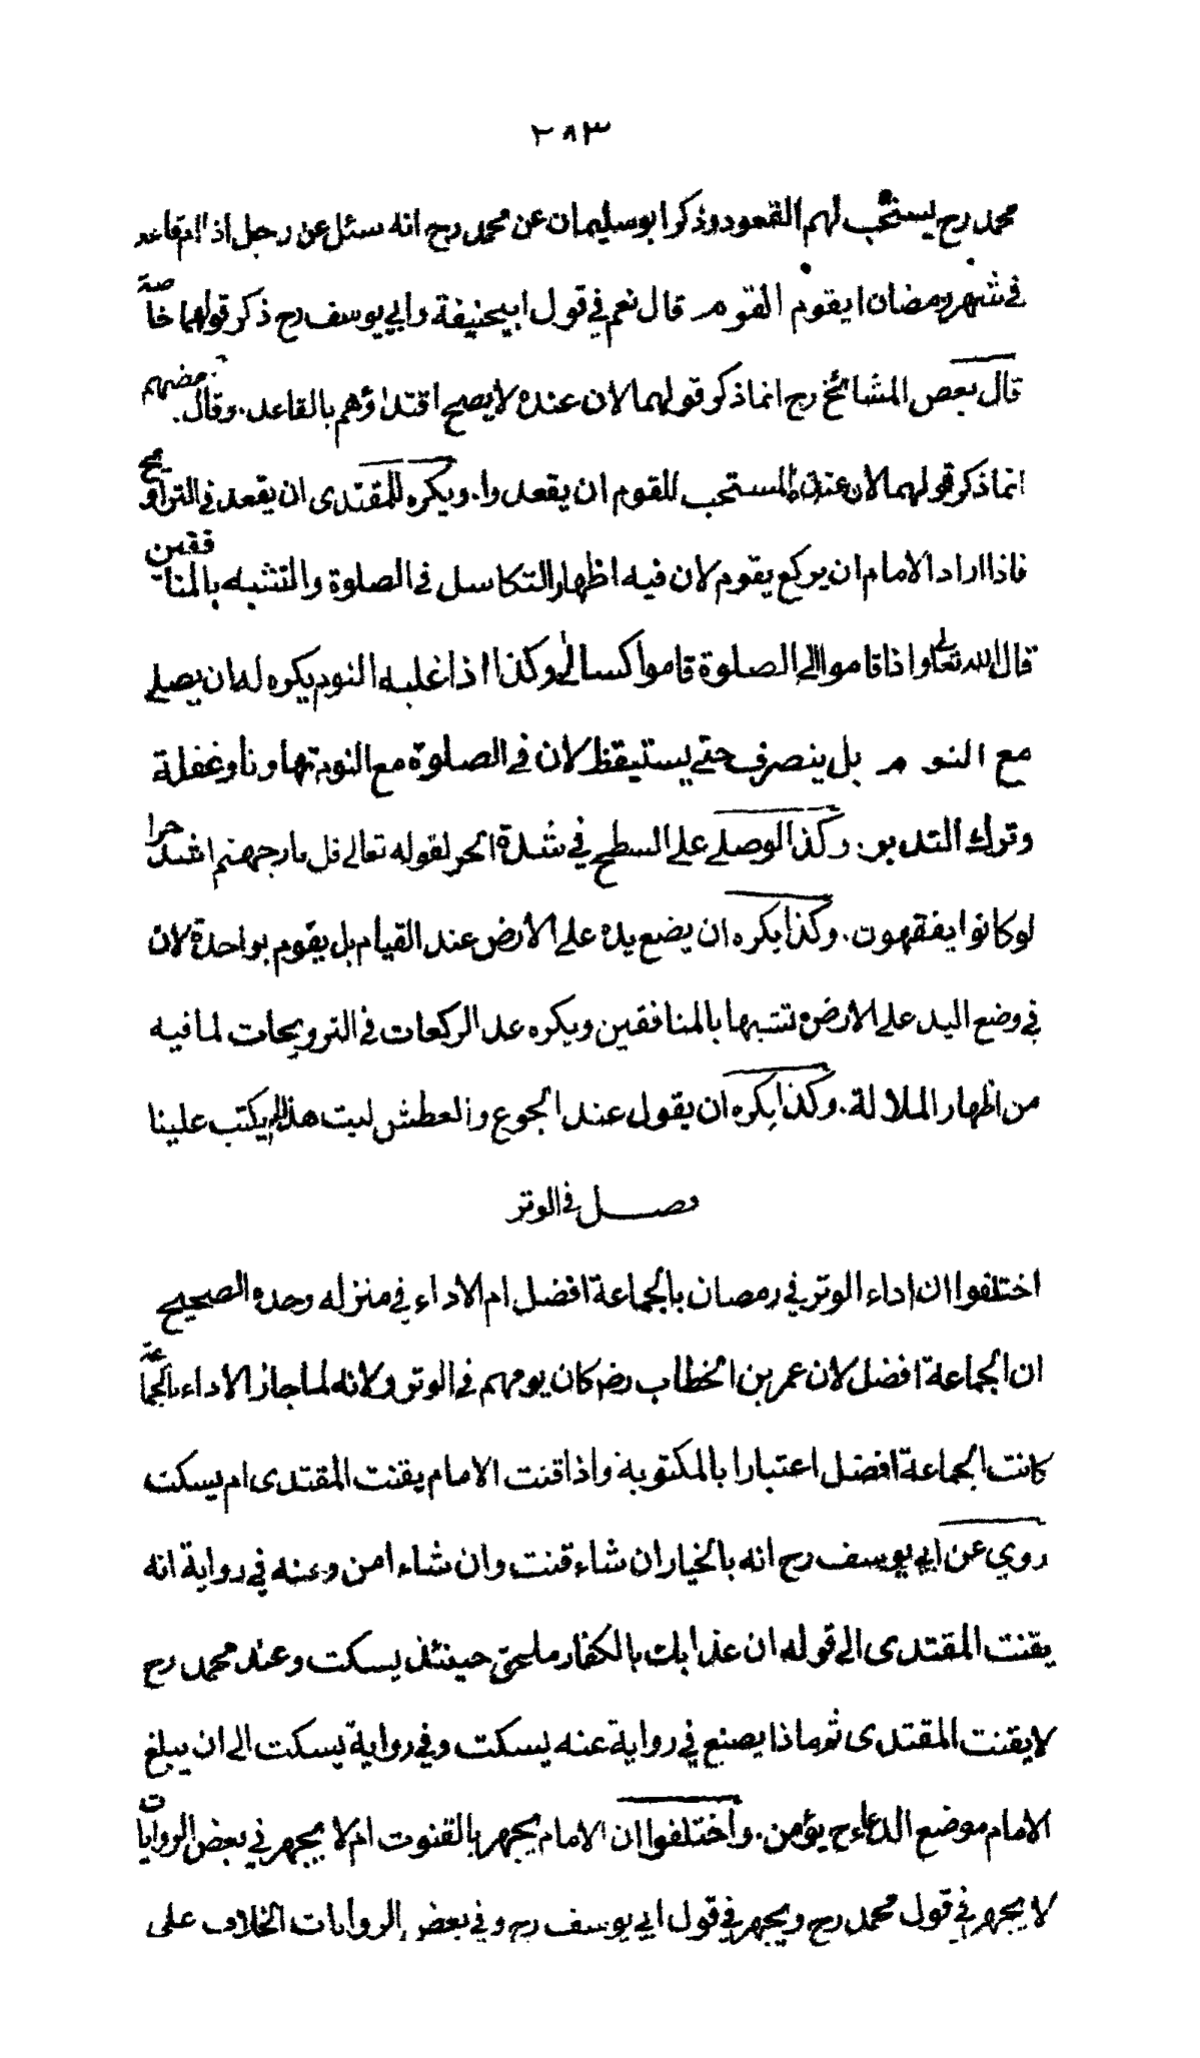 ٢٨٣
محمد رح يستحب لهم القعود وذكر ابو سليمان عن محمد رح انه سئل عن رجل اذا ام قاعد
في شهر رمضان ايقوم القوم قال نعم في قول ابيحنيفة وابي يوسف رح ذكر قولهما خاصة
قال بعض المشائخ رح انما ذكر قولهما لان عنده لا يصح اقتداؤهم بالقاعد. وقال بعضهم
انما ذكر قولهما لان عنده المستحب للقوم ان يقعدوا. ويكره للمقتدى ان يقعد في التراويح
فاذا اراد الامام ان يركع يقوم لان فيه اظهار التكاسل في الصلوة والتشبه بالمنافقين
قال الله تعالى واذا قاموا الى الصلوة قاموا كسالى وكذا اذا غلبه النوم يكره له ان يصلي
مع النوم بل ينصرف حتى يستيقظ لان في الصلوة مع النوم تهاونا وغفلة
وترك التدبر. وكذا لو صلى على السطح في شدة الحر لقوله تعالى قل نار جهنم اشد حرا
لو كانوا يفقهون. وكذا يكره ان يضع يده على الارض عند القيام بل يقوم بواحدة لان
في وضع اليد على الارض تشبها بالمنافقين ويكره عد الركعات في الترويحات لما فيه
من اظهار الملالة. وكذا يكره ان يقول عند الجوع والعطش ليت هذا لم يكتب علينا
فصل في الوتر
اختلفوا ان اداء الوتر في رمضان بالجماعة افضل ام الاداء في منزله وحده الصحيح
ان الجماعة افضل لان عمر بن الخطاب رضـ كان يومهم في الوتر ولانه لما جاز الاداء بالجماعة
كانت الجماعة افضل اعتبارا بالمكتوبة واذا قنت الامام يقنت المقتدى ام يسكت
روي عن ابي يوسف رح انه بالخيار ان شاء قنت وان شاء امن وعنه في رواية انه
يقنت المقتدى الى قوله ان عذابك بالكفار ملحق حينئذ يسكت وعند محمد رح
لا يقنت المقتدى ثم ماذا يصنع في رواية عنه يسكت وفي رواية يسكت الى ان يبلغ
الامام موضع الدعاء ح يؤمن. واختلفوا ان الامام يجهر بالقنوت ام لا يجهر في بعض الروايات
لا يجهر في قول محمد رح ويجهر في قول ابي يوسف رح وفي بعض الروايات الخلاف على